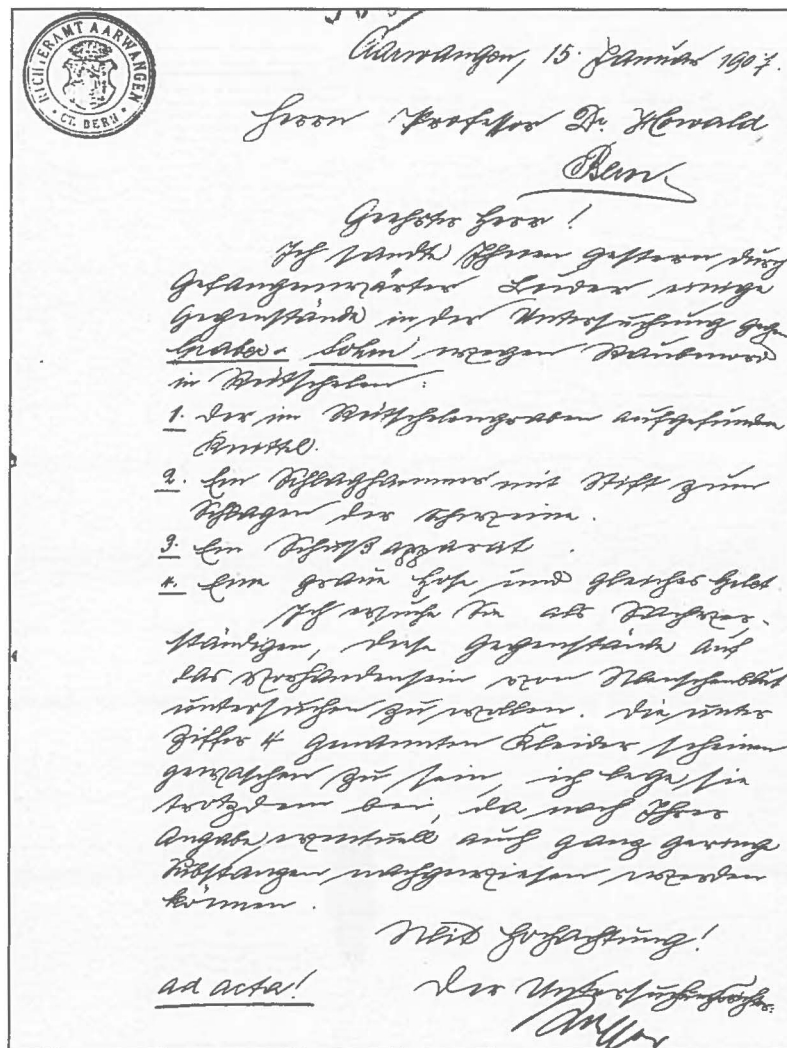 RICHTERAMT AARWANGEN
• CT. BERN •
Aarwangen, 15. Januar 1907.
Herrn Professor Dr. Howald
Bern
Geehrter Herr!
Ich sandte Ihnen gestern durch
Gefangenwärter Leider einige
Gegenstände in der Untersuchung gegen
wegen Raubmord
in Rütschelen:
1. Der im Rütschelengraben aufgefundene
Knittel.
2. Ein Schlaghammer mit Stift zum
Schlagen der Schweine.
3. Ein Schußapparat.
4. Eine graue Hose und gleiches Gilet
Ich ersuche Sie als Sachver-
ständigen, diese Gegenstände auf
das Vorhandensein von Menschenblut
untersuchen zu wollen. Die unter
Ziffer 4 genannten Kleider scheinen
gewaschen zu sein, ich lege sie
trotzdem bei, da nach Ihrer
Angabe eventuell auch ganz geringe
Substanzen nachgewiesen werden
können.
Mit Hochachtung!
ad acta! Der Untersuchungsrichter: